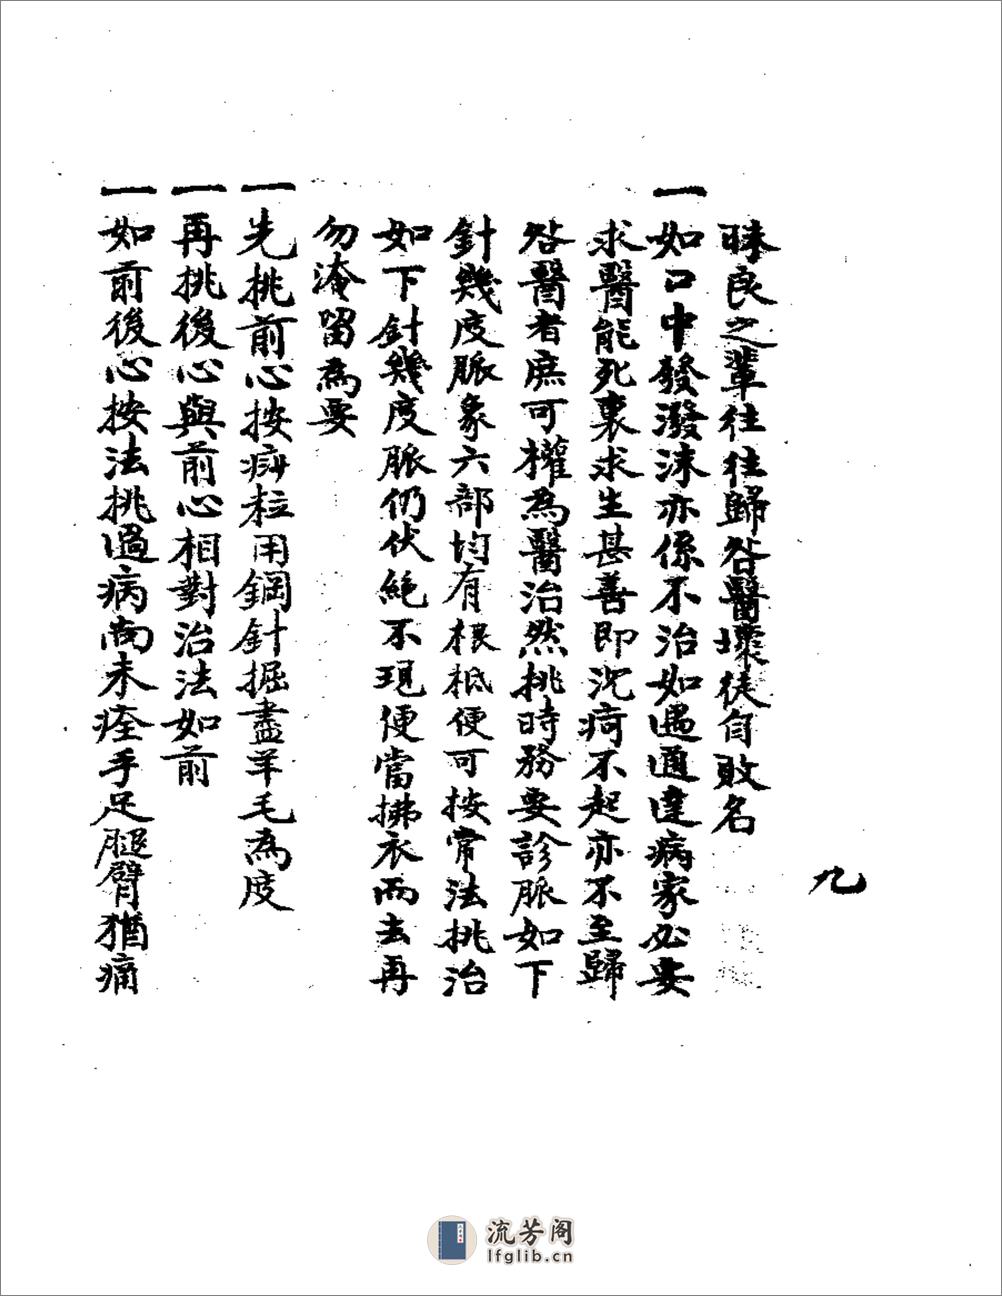 昧良之輩往往歸咎醫壞徒自敗名
一如口中發潑沫亦係不治如遇通達病家必要
求醫能死裏求生甚善即沉疴不起亦不至歸
咎醫者庶可權為醫治然挑時務要診脈如下
針幾度脈象六部均有根柢便可按常法挑治
如下針幾度脈仍伏絕不現便當拂衣而去再
勿淹留為要
一先挑前心按㾦粒用鋼針掘盡羊毛為度
一再挑後心與前心相對治法如前
一如前後心按法挑過病尚未痊手足腿臂猶痛
九
流芳阁
lfglib.cn